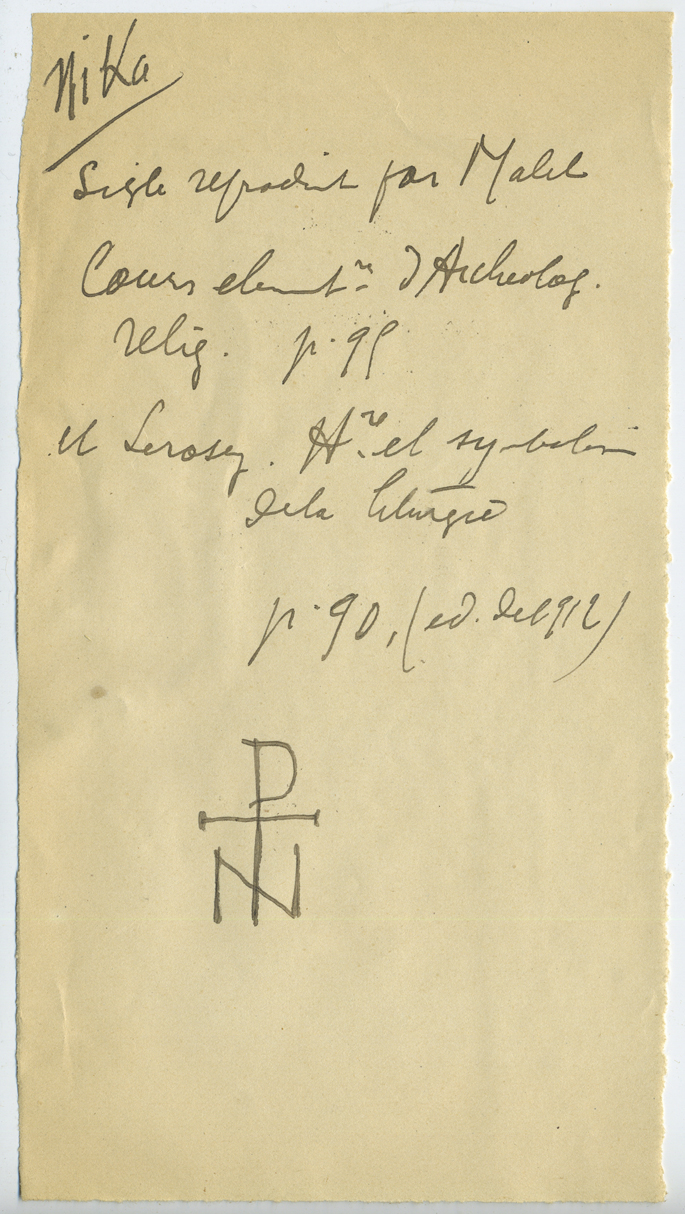 Nika
Sigle reproduit par Malet
Cours element.re d'Archeolog.
relig. p. 99
et Lerosey. H.re et symbolism
de la liturgie
p. 90, (ed. de 1912)
P
N